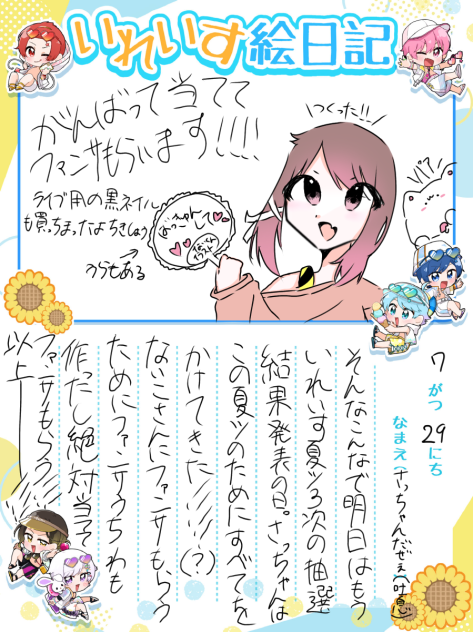 いれいす絵日記
がんばって当てて
ファンサもらいます!!!!
ライブ用の黒ネイル
も買っちまったよちきしょう
うらもある
つくった!!
7がつ29にち
なまえ(さっちゃんだぜぇ(吐息
そんなこんなで明日はもう
いれいす夏ツ3次の抽選
結果発表の日。さっちゃんは
この夏ツのためにすべてを
かけてきた!!!!(?)
ないこさんにファンサもらう
ためにファンサうちわも
作ったし絶対当てて
ファンサもらう!!!
以上